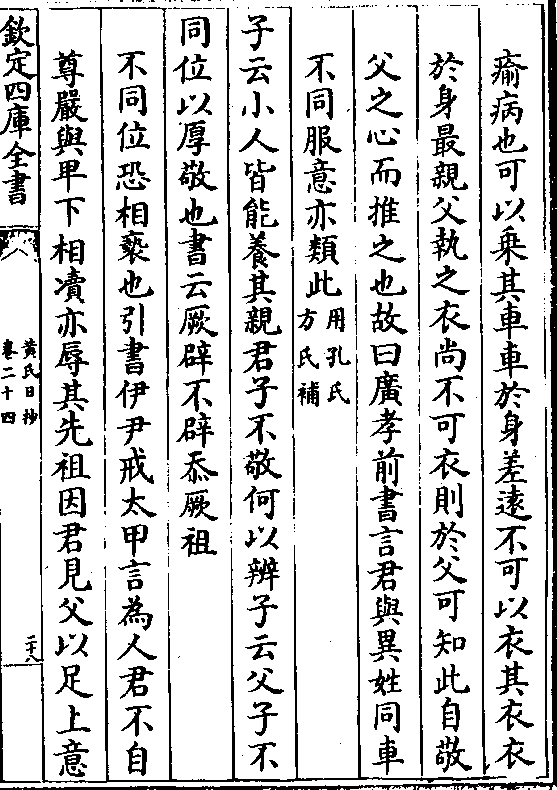 瘉病也可以乗其車車於身差逺不可以衣其衣衣
於身最親父執之衣尚不可衣則於父可知此自敬
父之心而推之也故曰廣孝前書言君與異姓同車
不同服意亦類此用孔氏方氏補
子云小人皆能養其親君子不敬何以辨子云父子不
同位以厚敬也書云厥辟不辟忝厥祖
不同位恐相䙝也引書伊尹戒太甲言為人君不自
尊嚴與甲下相凟亦辱其先祖因君見父以足上意
欽定四庫全書
黄氏日抄
卷二十四
二十八